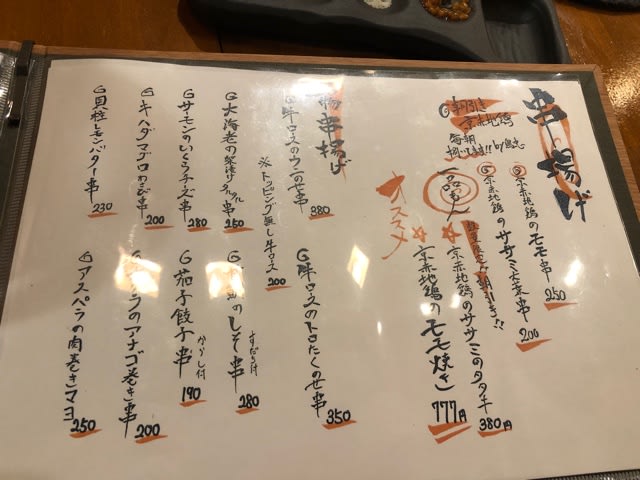 串揚げ
京赤地鶏のモモ串 250
京赤地鶏のササミ大葉串 200
朝引き
京赤地鶏
毎朝
一品もん
朝引き!!
☆京赤地鶏のササミのタタキ 380円
☆京赤地鶏のモモ焼き 777円
オススメ
串揚げ
G牛ロースのウニのせ串 380
G牛ロースのトロたくのせ串 350
※トッピング無し牛ロース 200
G大海老の タルタル串 250
のしそ串 すだち付 280
Gサーモンのいくらチーズ串 280
G茄子餃子串 からし付 190
Gキハダマグロわさび串 200
のアナゴ巻き串 200
G貝柱レモンバター串 230
Gアスパラの肉巻きマヨ 250